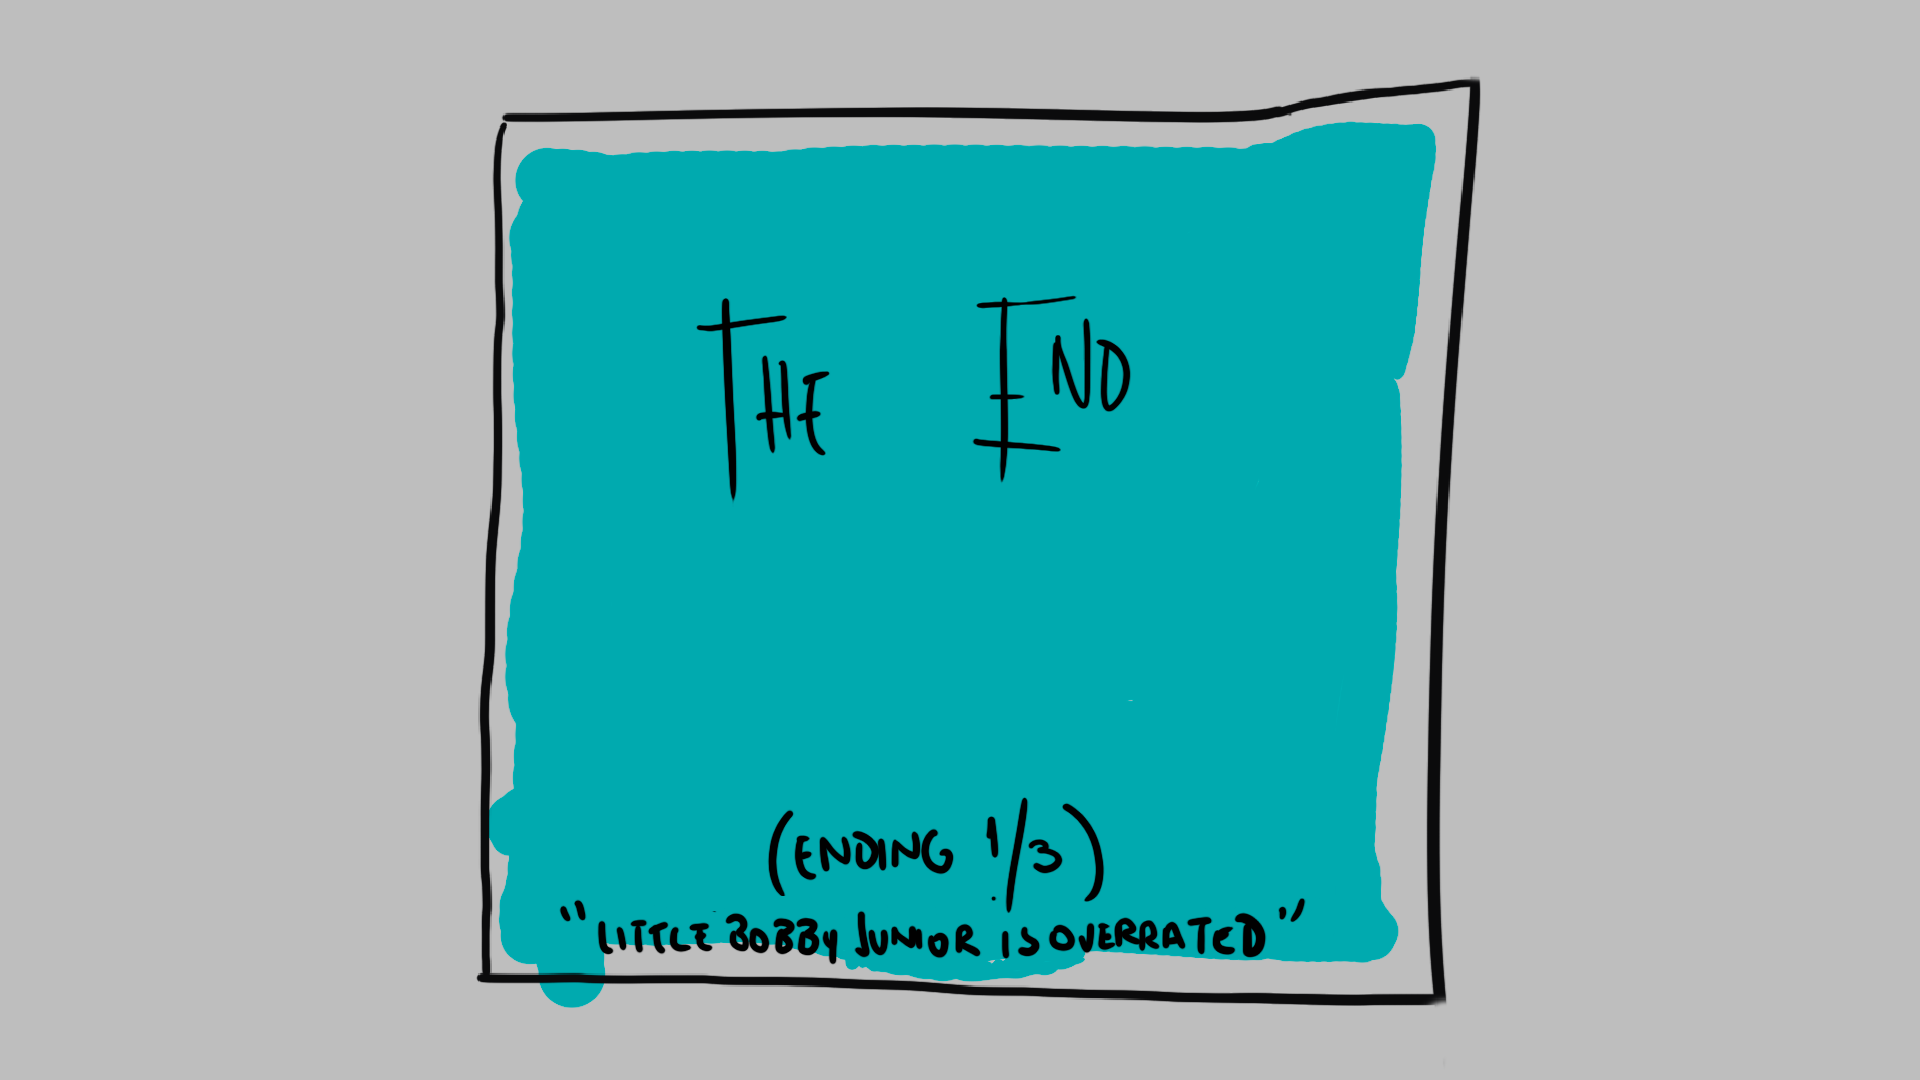 THE END
(ENDING 1/3)
"LITTLE BOBBY JUNIOR IS OVERRATED"